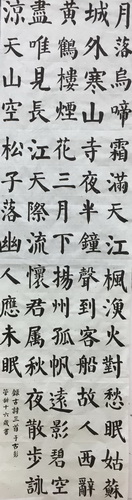 月落烏啼霜滿天江楓漁火對愁眠姑蘇
城外寒山寺夜半鐘聲到客船故人西辭
黃鶴樓煙花三月下揚州孤帆遠影碧空
盡唯見長江天際流懷君屬秋夜散步詠
涼天山空松子落幽人應未眠
錄古詩三首于古彭
十六歲書